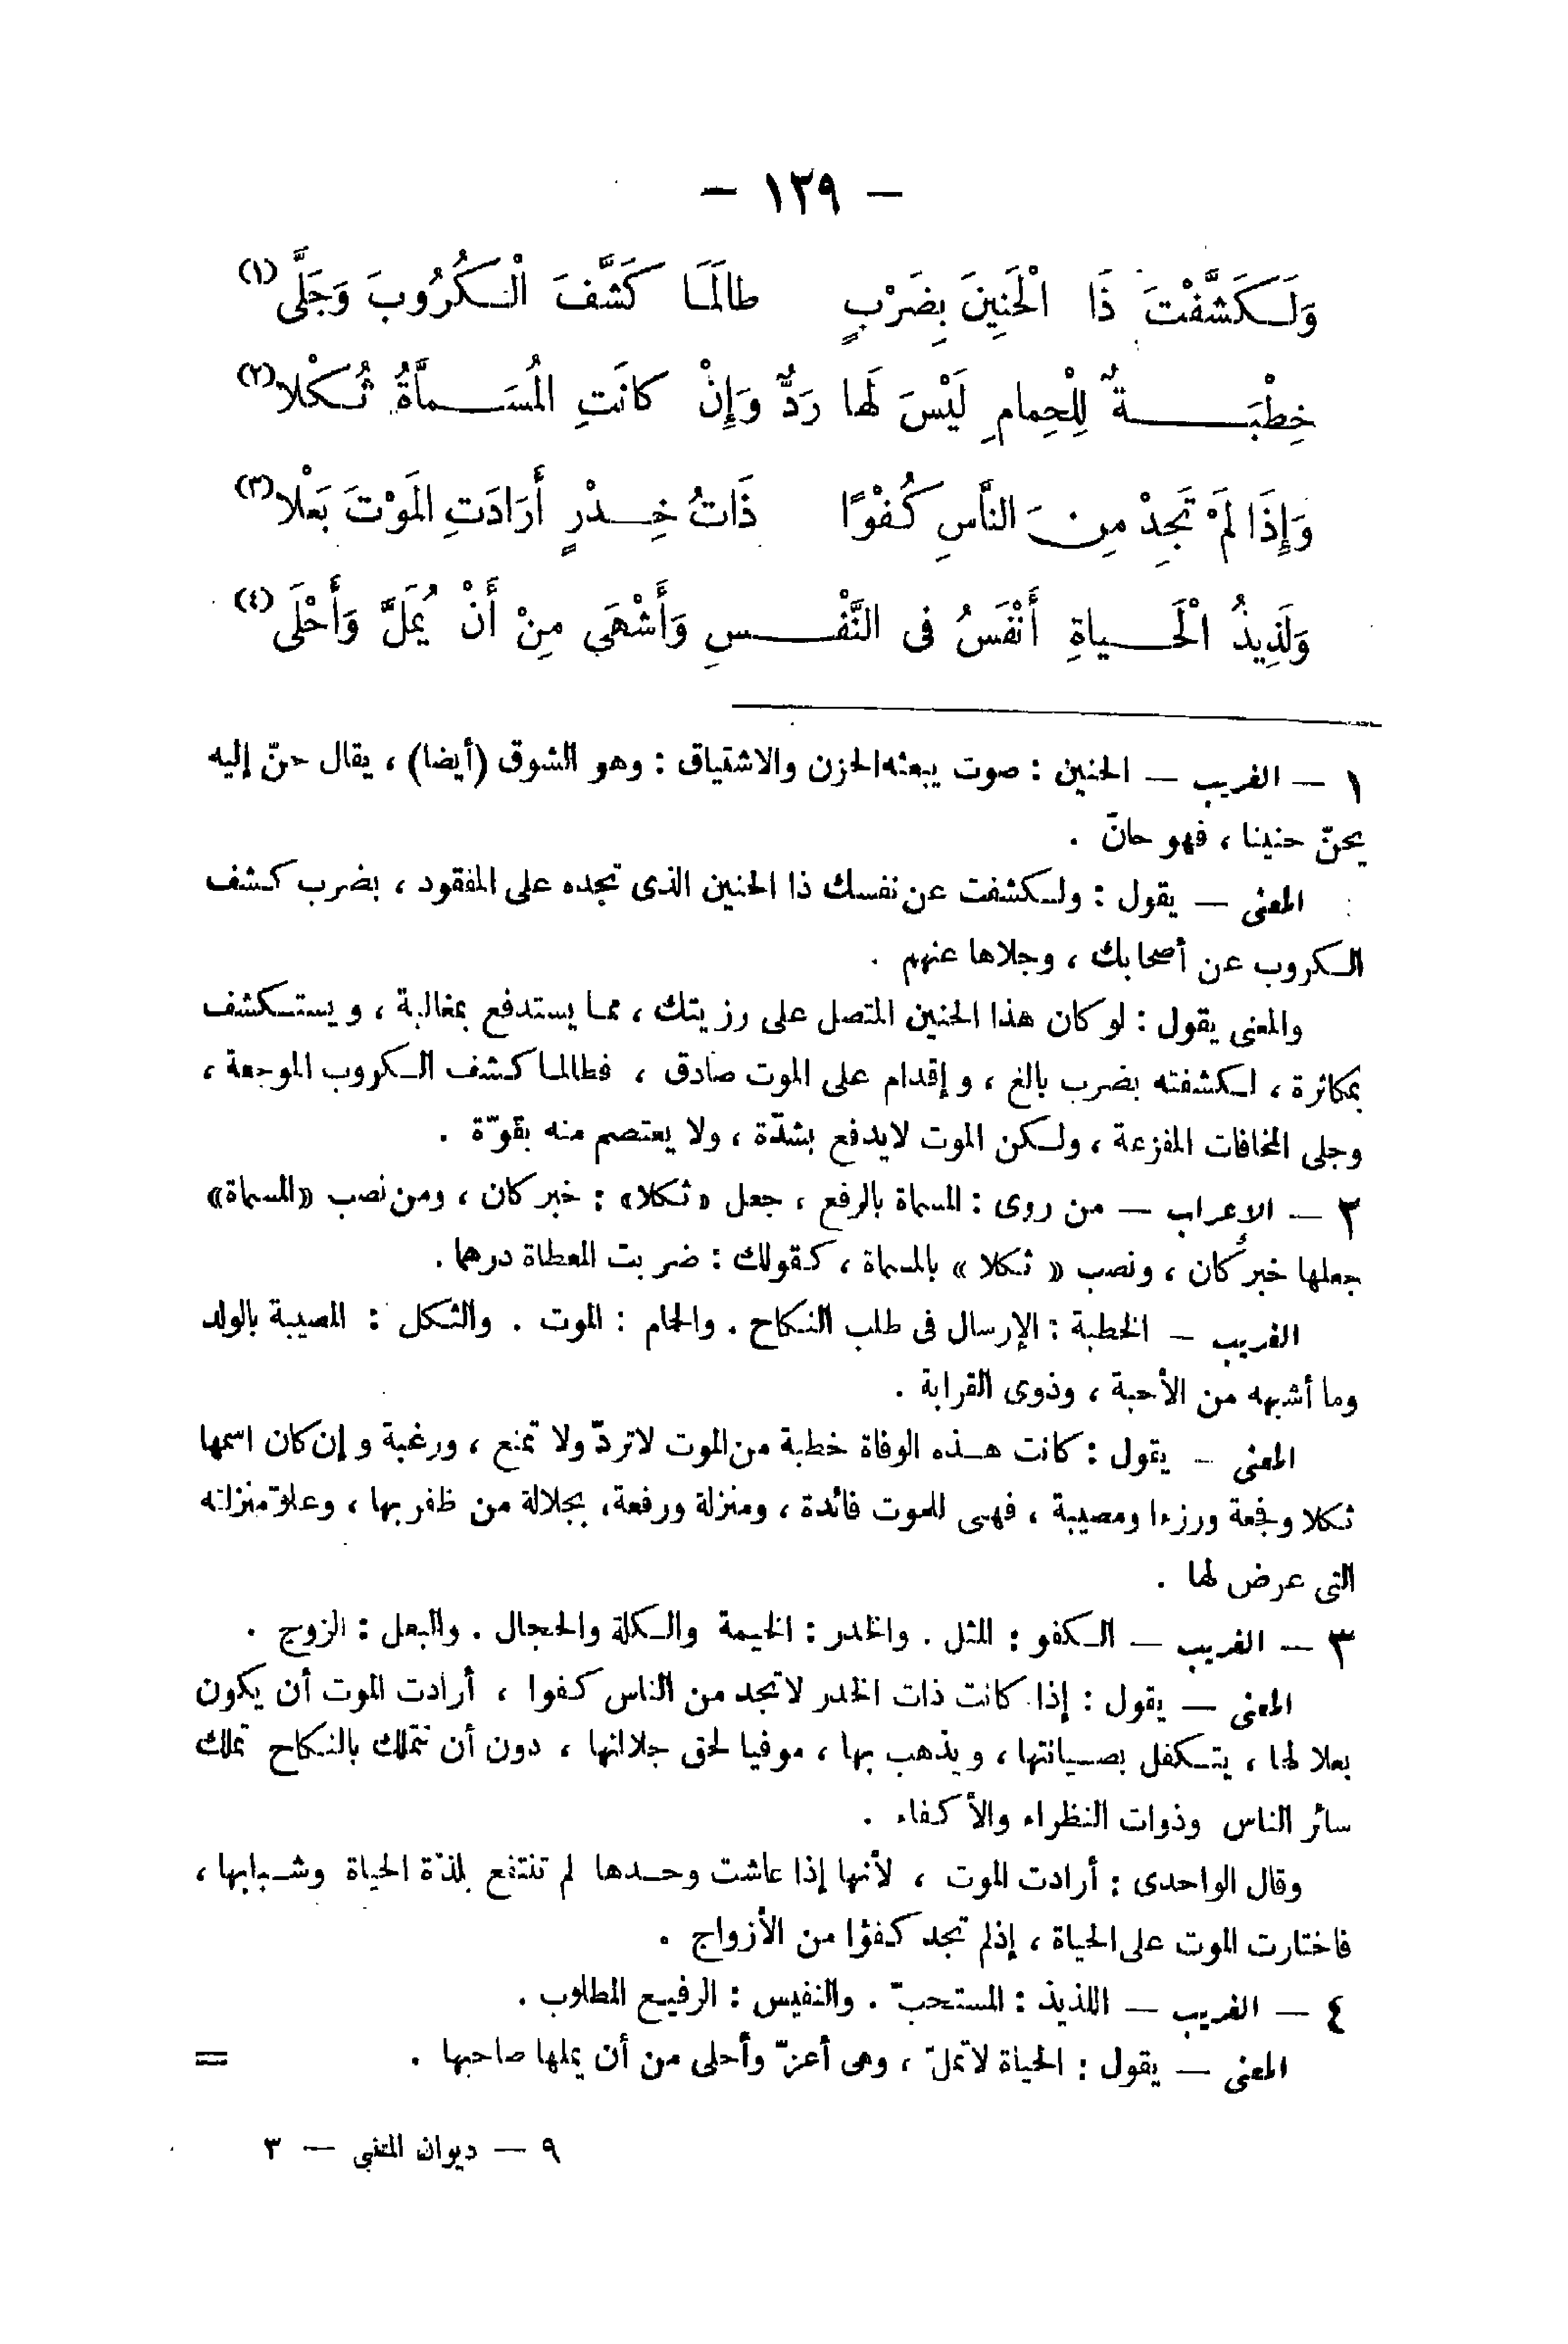 – ١٢٩ –
وَلَكَشَّفْتَ ذَا الْحَنِينَ بِضَرْبٍ طالَمَا كَشَّفَ الْكُرُوبَ وَجَلَّى (١)
خِطْبَةٌ لِلْحِمامِ لَيْسَ لَها رَدٌّ وَإِنْ كانَتِ الْمُسَمَّاةُ ثُكْلا (٢)
وَإِذَا لَمْ تَجِدْ مِنَ النَّاسِ كُفْوًا ذَاتُ خِدْرٍ أَرَادَتِ الْمَوْتَ بَعْلا (٣)
وَلَذِيذُ الْحَياةِ أَنْفَسُ فى النَّفْسِ وَأَشْهَى مِنْ أَنْ يُمَلَّ وَأَحْلَى (٤)
١ – الغريب – الحنين : صوت يبعثه الحزن والاشتياق : وهو الشوق (أيضا) ، يقال حنّ إليه
يحنّ حنينا ، فهو حانّ .
المعنى – يقول : ولكشفت عن نفسك ذا الحنين الذى تجده على المفقود ، بضرب كشف
الكروب عن أصحابك ، وجلاها عنهم .
والمعنى يقول : لو كان هذا الحنين المتصل على رزيتك ، مما يستدفع بمغالبة ، ويستكشف
بمكاثرة ، لكشفته بضرب بالغ ، وإقدام على الموت صادق ، فطالما كشف الكروب الموجعة ،
وجلى المخافات المفزعة ، ولكن الموت لايدفع بشدّة ، ولا يعتصم منه بقوّة .
٢ – الإعراب – من روى : المسماة بالرفع ، جعل «ثكلا» : خبر كان ، ومن نصب «المسماة»
جعلها خبر كان ، ونصب « ثكلا » بالمسماة ، كقولك : ضربت المعطاة درهما .
الغريب – الخطبة : الإرسال فى طلب النكاح . والحمام : الموت . والثكل : المصيبة بالولد
وما أشبهه من الأحبة ، وذوى القرابة .
المعنى – يقول : كانت هذه الوفاة خطبة من الموت لاتردّ ولا تمنع ، ورغبة وإن كان اسمها
ثكلا وفجعة ورزءا ومصيبة ، فهى للموت فائدة ، ومنزلة ورفعة ، بجلالة من ظفر بها ، وعلوّ منزلته
التى عرض لها .
٣ – الغريب – الكفو : المثل . والخدر : الخيمة والكلة والحجال . والبعل : الزوج .
المعنى – يقول : إذا كانت ذات الخدر لاتجد من الناس كفوا ، أرادت الموت أن يكون
بعلا لها ، يتكفل بصيانتها ، ويذهب بها ، موفيا لحق جلالتها ، دون أن تتملك بالنكاح تملك
سائر الناس وذوات النظراء والأكفاء .
وقال الواحدى : أرادت الموت ، لأنها إذا عاشت وحدها لم تنتفع بلذّة الحياة وشبابها ،
فاختارت الموت على الحياة ، إذلم تجد كفؤا من الأزواج .
٤ – الغريب – اللذيذ : المستحبّ . والنفيس : الرفيع المطلوب .
المعنى – يقول : الحياة لاتملّ ، وهى أعزّ وأحلى من أن يملها صاحبها . =
٩ – ديوان المتنبي – ٣